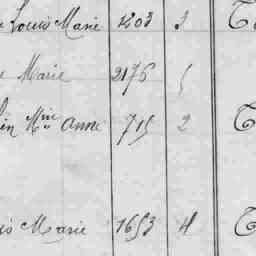 Louis Marie 1203 3
Marie 2176 5
in Mne Anne 715 2
is Marie 1653 4